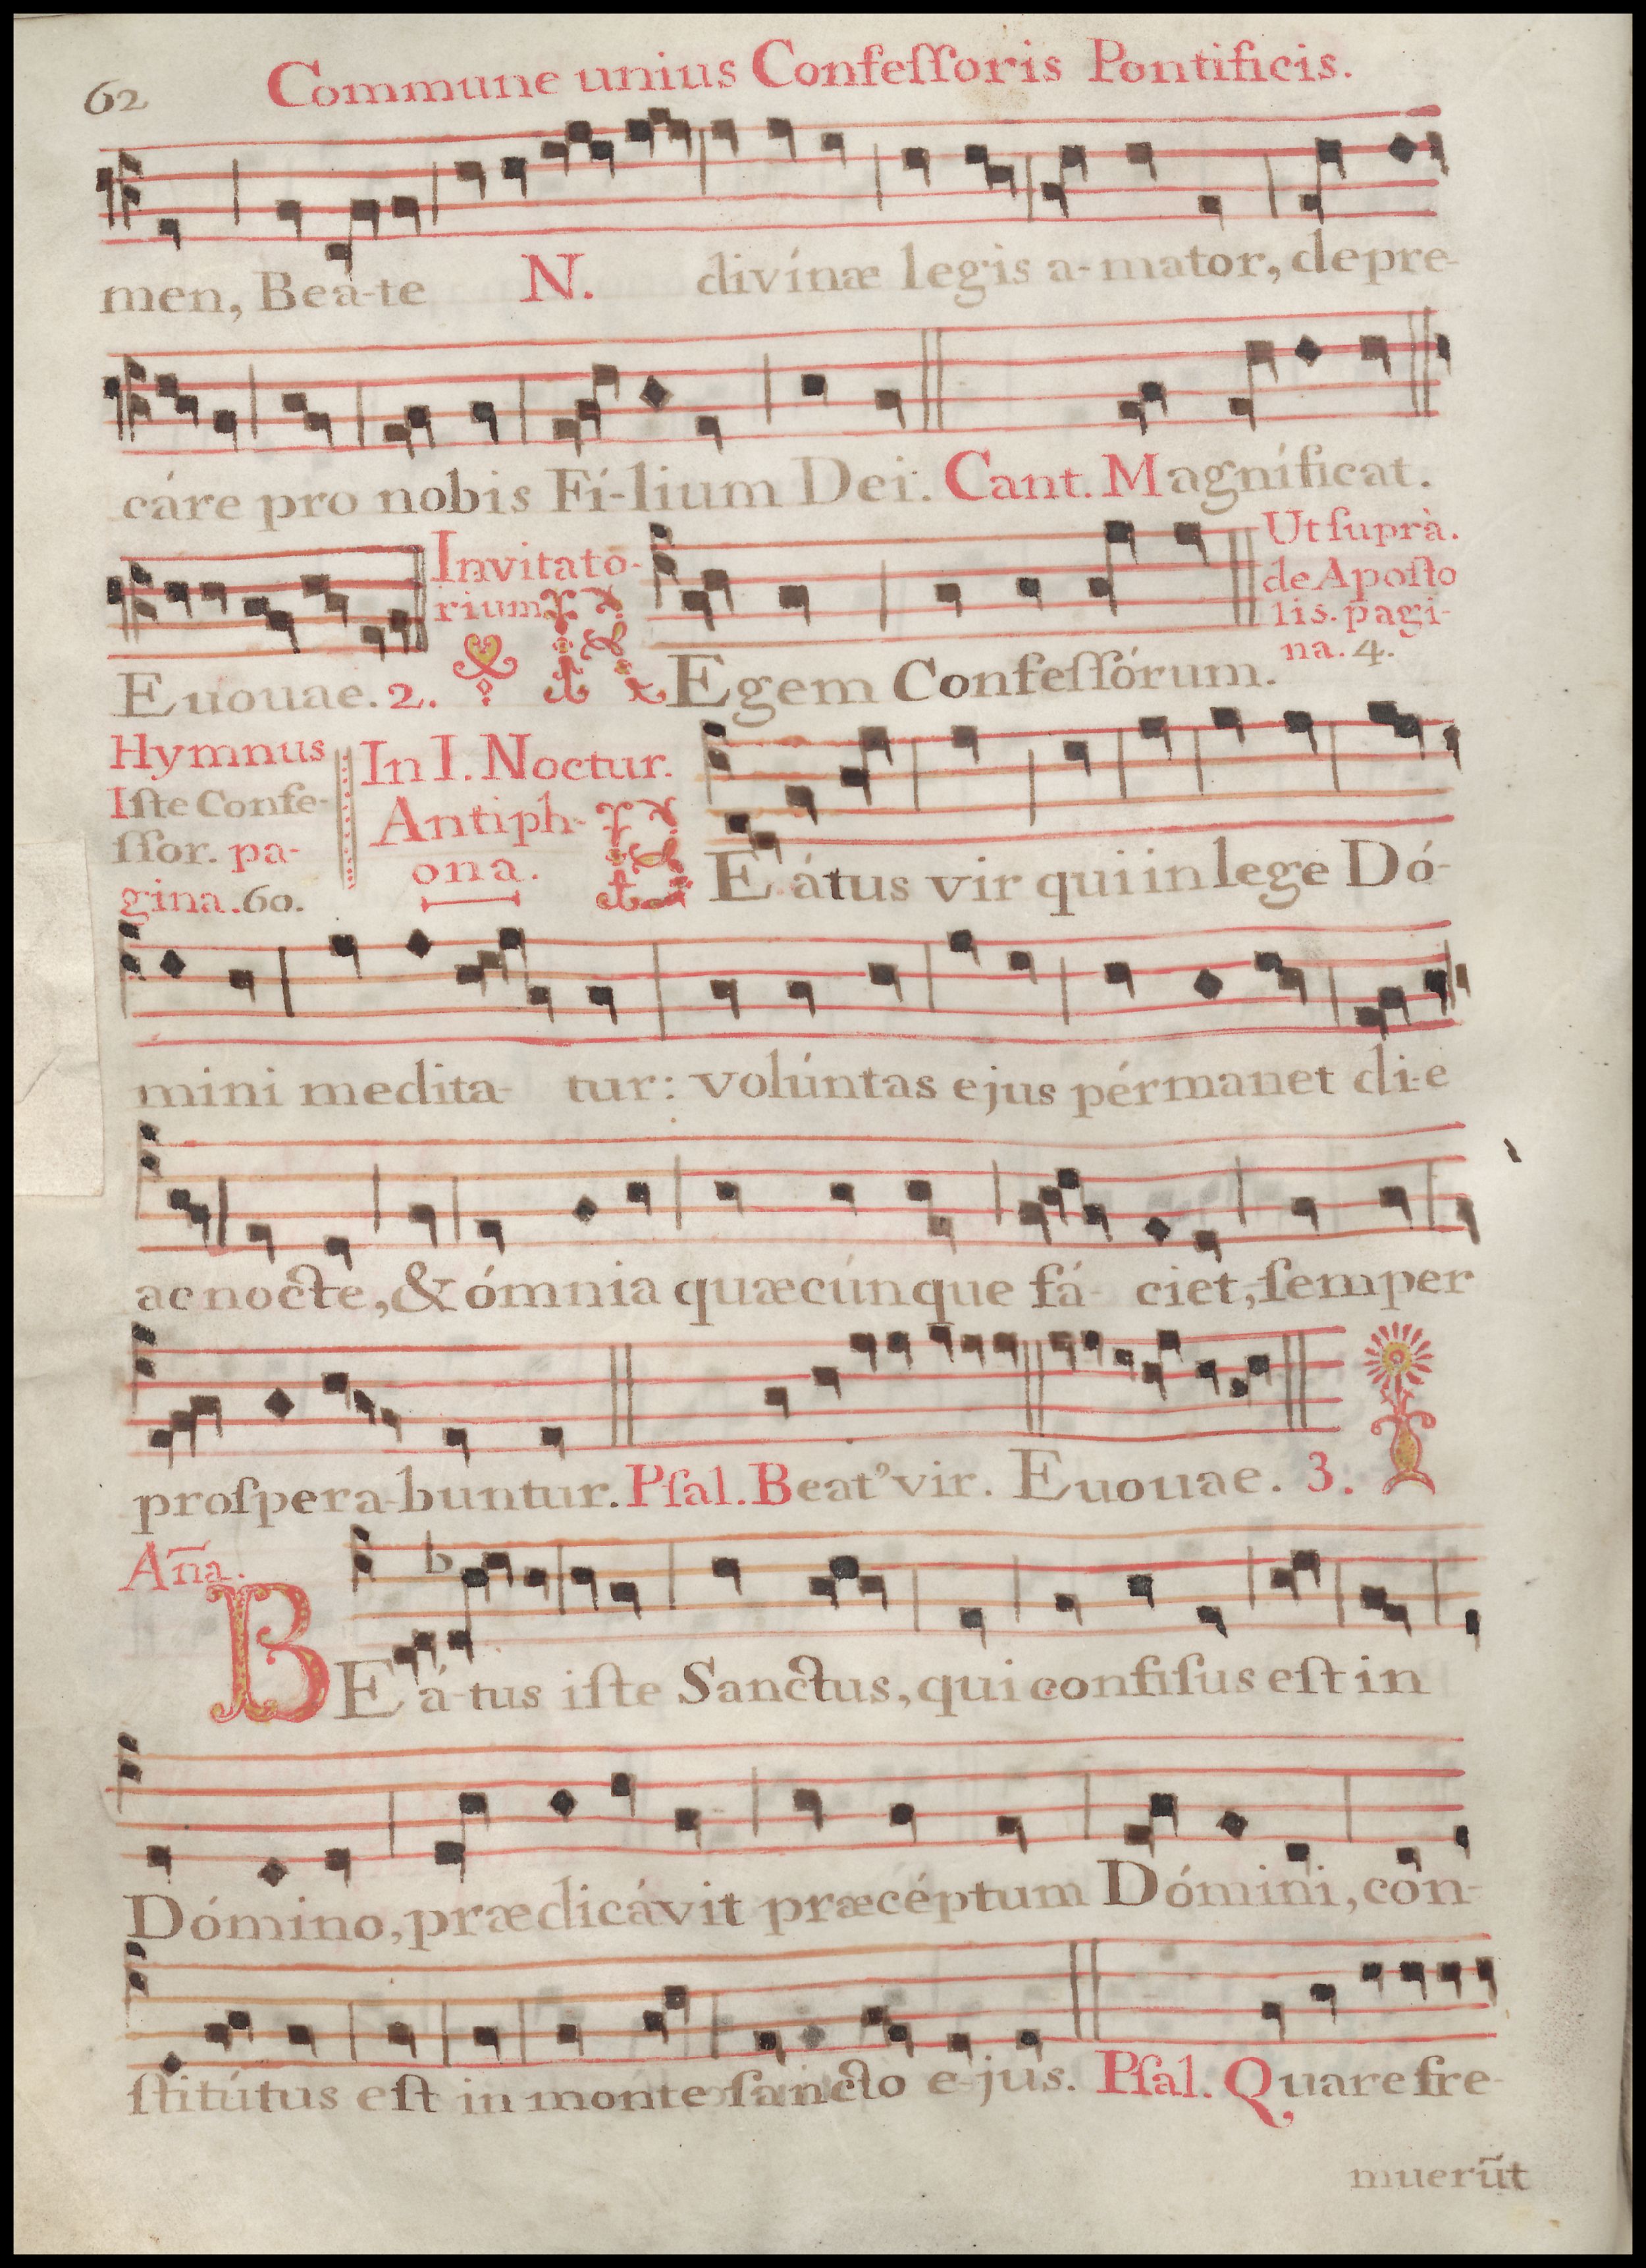 62 Commune unius Confeſſoris Pontificis.
men, Beá-te N. divínæ legis a-mator, depre-
cáre pro nobis Fí-lium Dei. Cant. Magníficat.
Invitato-
rium.
Euouae. 2. REgem Confeſſórum.
Ut ſuprà.
de Apoſto
lis. pagi-
na. 4.
Hymnus
Iſte Confe-
ſſor. pa-
gina. 60.
In I. Noctur.
Antiph-
ona.
BEátus vir qui in lege Dó-
mini medita-tur: volúntas ejus pérmanet di-e
ac nocte, & ómnia quæcúnque fá-ciet, ſemper
proſpera-buntur. Pſal. Beat' vir. Euouae. 3.
Aña.
BEá-tus iſte Sanctus, qui confiſus eſt in
Dómino, prædicávit præcéptum Dómini, con-
ſtitútus eſt in monte ſancto e-jus. Pſal. Quare fre-
muerūt